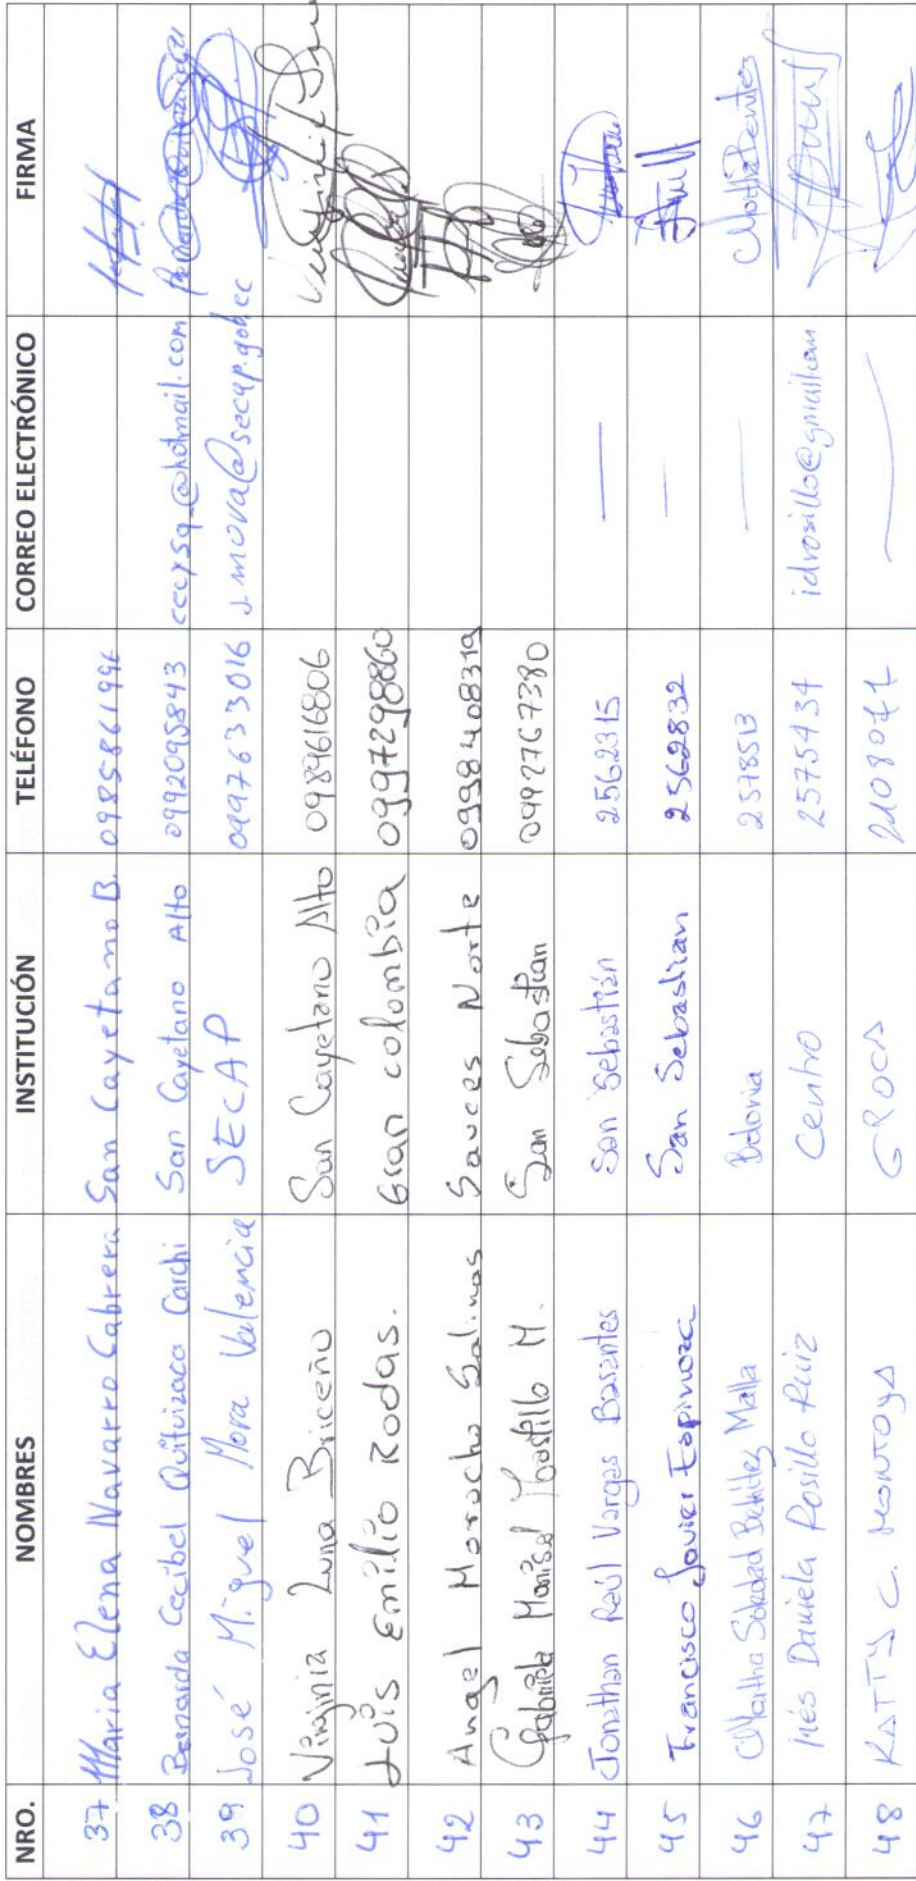 NRO. NOMBRES INSTITUCIÓN TELÉFONO CORREO ELECTRÓNICO FIRMA
37 Maria Elena Navarro Cabrera San Cayetano B. 0985861996
38 Bernarda Cecibel Quituizaca Carchi San Cayetano Alto 0992095843 cecysq_@hotmail.com
39 José Miguel Mora Valencia SECAP 0997633016 j.mora@secap.gob.ec
40 Virginia Luna Briceño San Cayetano Alto 0989616806
41 Luis Emilio Rodas. Gran colombia 0997298860
42 Angel Morocho Salinas Sauces Norte 0998408319
43 Gabriela Marisol M. San Sebastian 0992767380
44 Jonathan Raúl Vargas Basantes San Sebastián 2562315 —
45 Francisco Javier Espinoza San Sebastian 2562832 —
46 Martha Soledad Benítez Malla 2578513 — Martha Benítez
47 Inés Daniela Rosillo Ruiz Centro 2575434
48 KATTY C. MONTOYA —